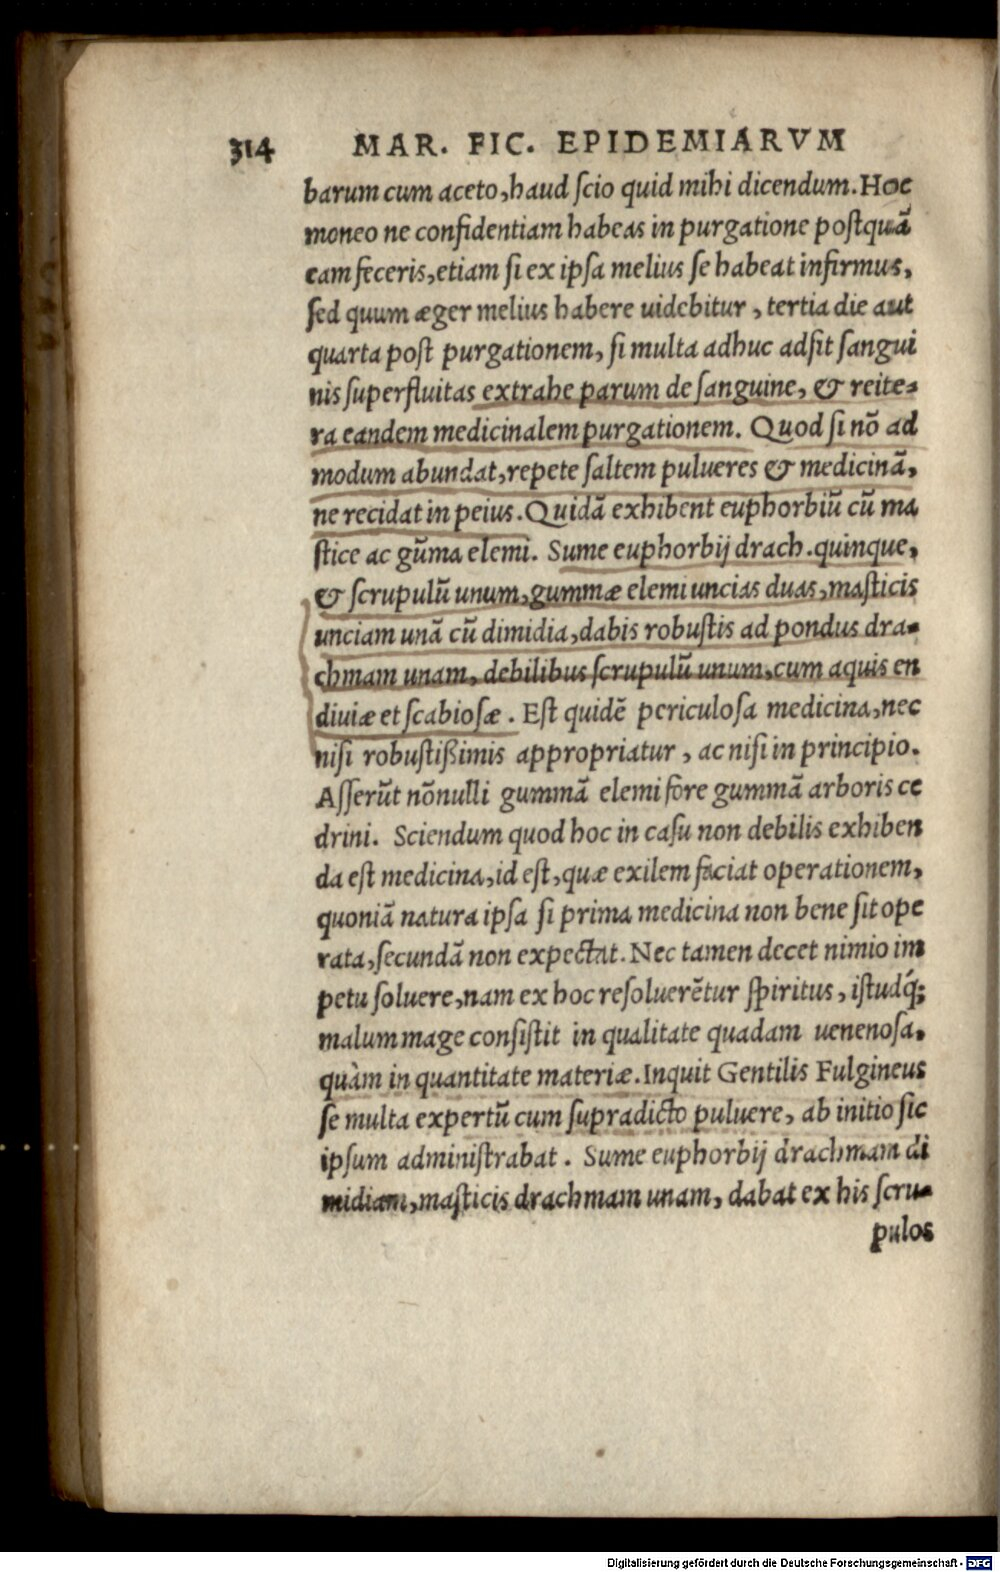 314 MAR. FIC. EPIDEMIARVM
barum cum aceto, haud ſcio quid mihi dicendum. Hoc
moneo ne confidentiam habeas in purgatione poſtquã
eam feceris, etiam ſi ex ipſa melius ſe habeat infirmus,
ſed quum æger melius habere uidebitur, tertia die aut
quarta poſt purgationem, ſi multa adhuc adſit ſangui
nis ſuperfluitas extrahe parum de ſanguine, & reite-
ra eandem medicinalem purgationem. Quod ſi nõ ad
modum abundat, repete ſaltem pulueres & medicinã,
ne recidat in peius. Quidã exhibent euphorbiũ cũ ma
ſtice ac gũma elemi. Sume euphorbij drach. quinque,
& ſcrupulũ unum, gummæ elemi uncias duas, maſticis
unciam unã cũ dimidia, dabis robuſtis ad pondus dra-
chmam unam, debilibus ſcrupulũ unum, cum aquis en
diuiæ et ſcabioſæ. Eſt quidẽ periculoſa medicina, nec
niſi robuſtißimis appropriatur, ac niſi in principio.
Aſſerũt nõnulli gummã elemi fore gummã arboris ce
drini. Sciendum quod hoc in caſu non debilis exhiben
da eſt medicina, id eſt, quæ exilem faciat operationem,
quoniã natura ipſa ſi prima medicina non bene ſit ope
rata, ſecundã non expectat. Nec tamen decet nimio im
petu ſoluere, nam ex hoc reſoluerẽtur ſpiritus, iſtudq́;
malum mage conſiſtit in qualitate quadam uenenoſa,
quàm in quantitate materiæ. Inquit Gentilis Fulgineus
ſe multa expertũ cum ſupradicto puluere, ab initio ſic
ipſum adminiſtrabat. Sume euphorbij drachmam di
midiam, maſticis drachmam unam, dabat ex his ſcru-
pulos
Digitalisierung gefördert durch die Deutsche Forschungsgemeinschaft - DFG